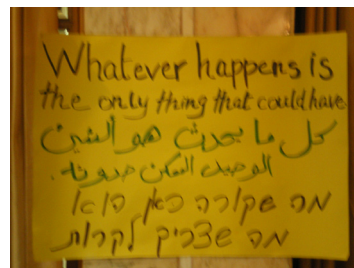 Whatever happens is
the only thing that could have
كل ما يحدث هو الشيئ
الوحيد الممكن حدوثه.
מה שקורה כאן הוא
מה שצריך לקרות